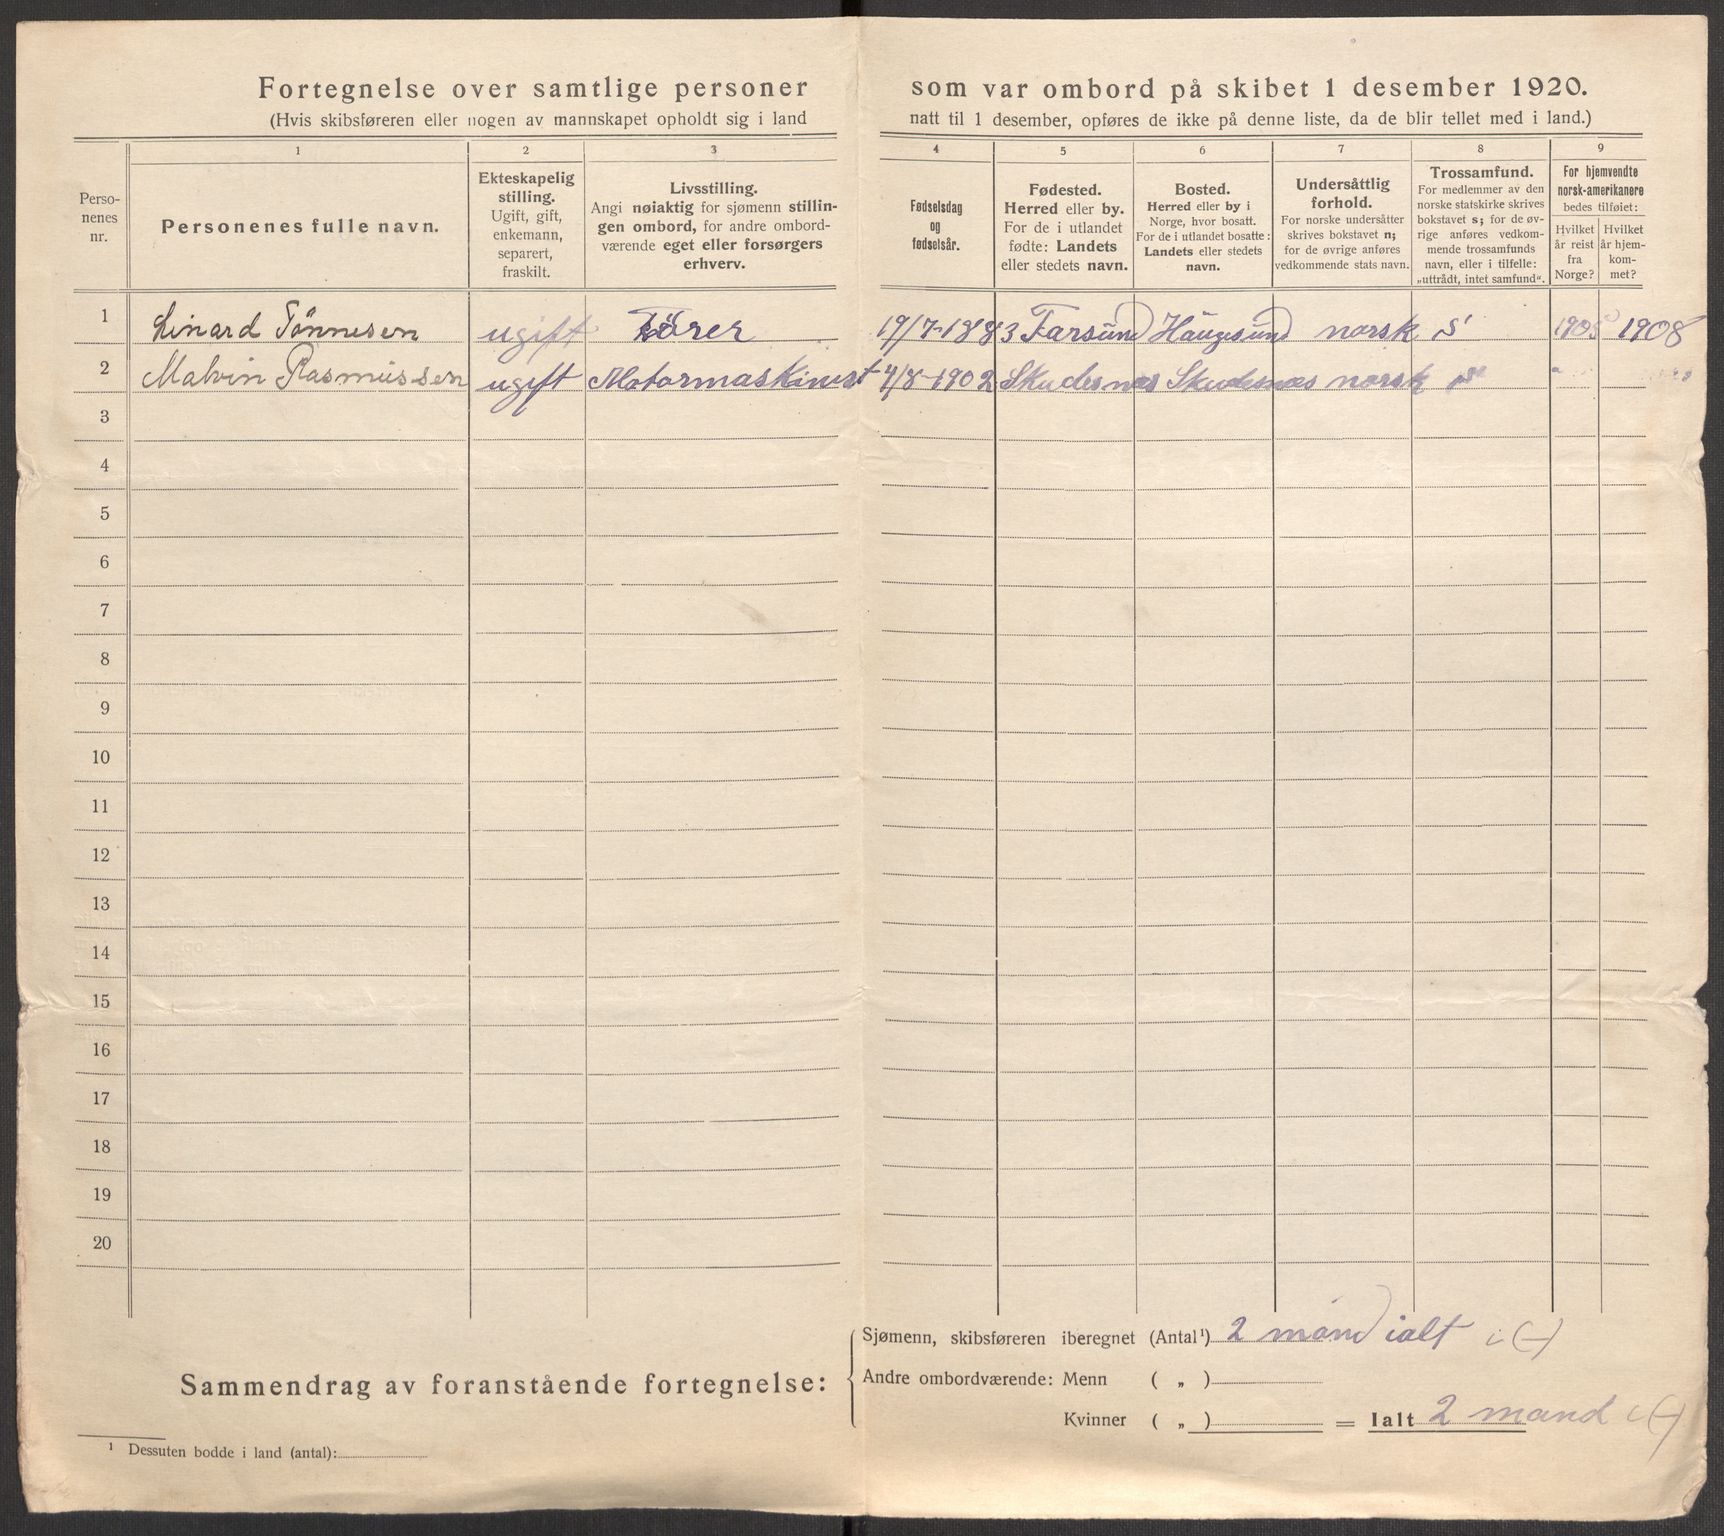 Fortegnelse over samtlige personer som var ombord på skibet 1 desember 1920.
(Hvis skibsføreren eller nogen av mannskapet opholdt sig i land natt til 1 desember, opføres de ikke på denne liste, da de blir tellet med i land.)
1 2 3 4 5 6 7 8 9
Perso-
nenes
nr.
Personenes fulle navn.
Ekteskapelig
stilling.
Ugift, gift,
enkemann,
separert,
fraskilt.
Livsstilling.
Angi nøiaktig for sjømenn stillin-
gen ombord, for andre ombord-
værende eget eller forsørgers
erhverv.
Fødselsdag
og
fødselsår.
Fødested.
Herred eller by.
For de i utlandet
fødte: Landets
eller stedets navn.
Bosted.
Herred eller by i
Norge, hvor bosatt.
For de i utlandet bosatte:
Landets eller stedets
navn.
Undersåttlig
forhold.
For norske undersåtter
skrives bokstavet n;
for de øvrige anføres
vedkommende stats navn.
Trossamfund.
For medlemmer av den
norske statskirke skrives
bokstavet s; for de øv-
rige anføres vedkom-
mende trossamfunds
navn, eller i tilfelle:
„uttrådt, intet samfund“.
For hjemvendte
norsk-amerikanere
bedes tilføiet:
Hvilket
år reist
fra
Norge?
Hvilket
år hjem-
kom-
met?
1 Linard Tönnesen ugift Förer 19/7-1883 Farsund Haugesund norsk s 1905 1908
2 Malvin Rasmussen ugift Motormaskinist 4/8-1902 Skudesnæs Skudesnæs norsk s
3
4
5
6
7
8
9
10
11
12
13
14
15
16
17
18
19
20
Sammendrag av foranstående fortegnelse:
Sjømenn, skibsføreren iberegnet (Antal¹) 2 mand ialt
Andre ombordværende: Menn ( „ )
Kvinner ( „ ) = Ialt 2 mand
¹ Dessuten bodde i land (antal):